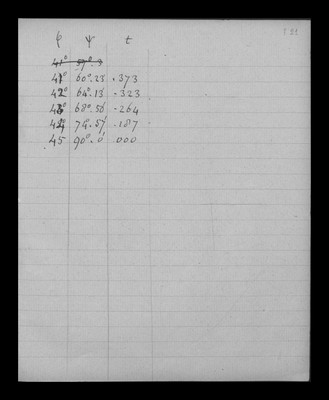 φ ψ t
41° 57°.3
41° 60°.23' .373
42° 64°.13' .323
43° 68°.58' .264
44° 74°.57' .187
45 90°.0' 000